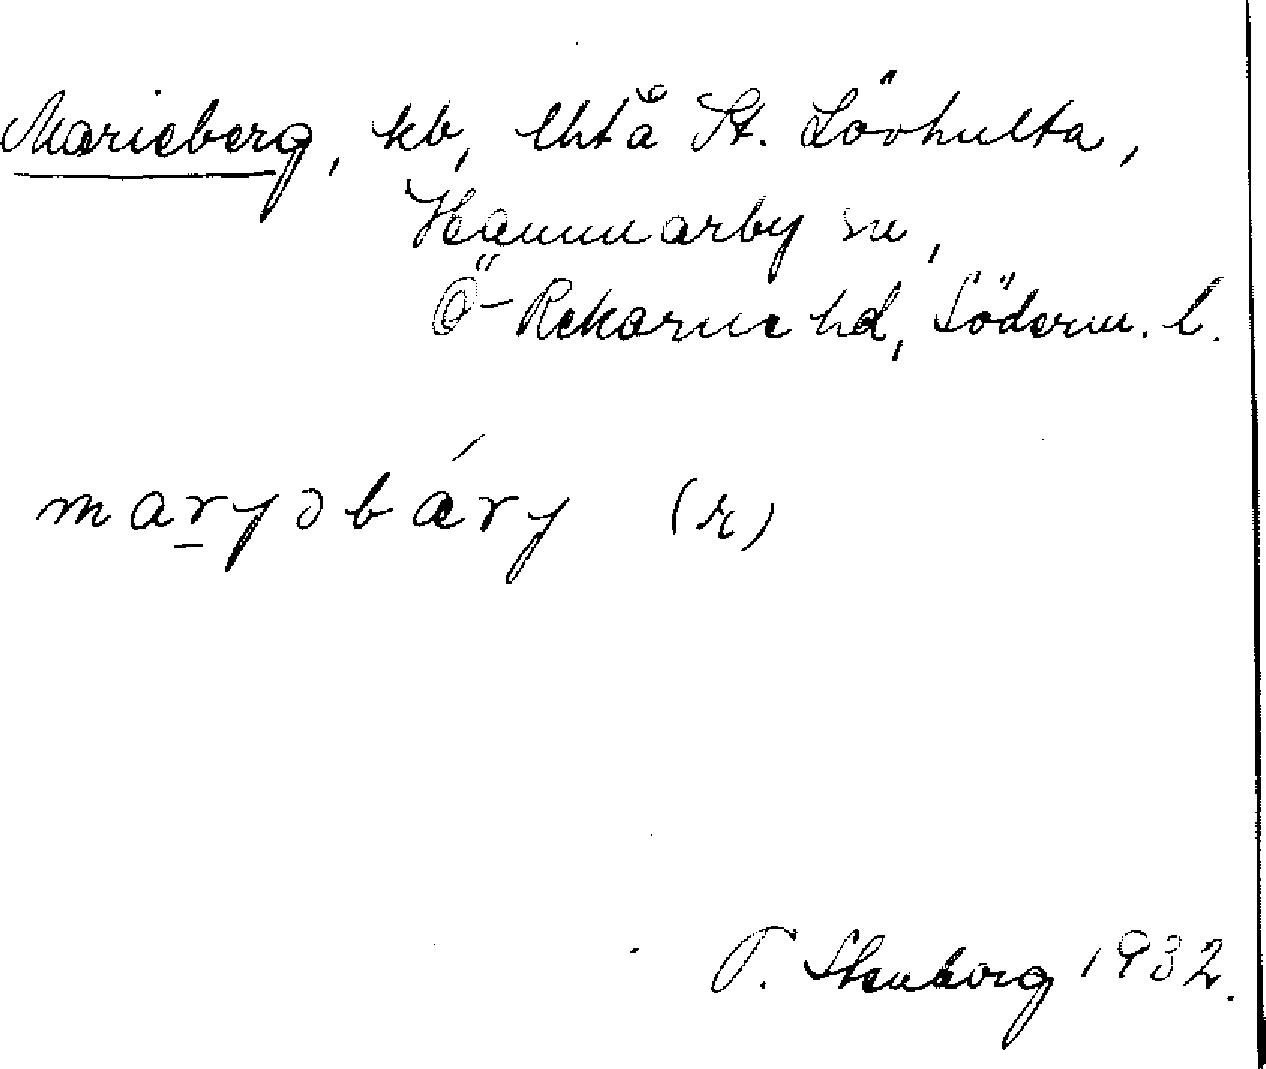 Marieberg, kb, lht å St. Lövhulta,
Hammarby sn,
Ö-Rekarne hd, Söderm. l.
maryəbǽry (r)
T. Stenborg 1932.